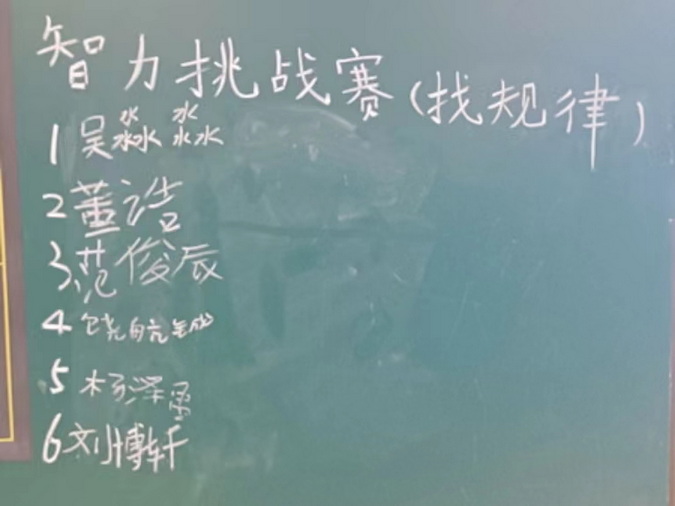 智力挑战赛（找规律）
1 吴淼淼
2 董诰
3 范俊辰
4 饶航诚
5 杨泽
6 刘博轩